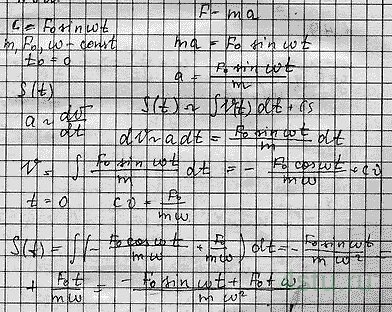 F = ma
F = F₀ sin ωt
m, F₀, ω - const
t₀ = 0
ma = F₀ sin ωt
a = F₀ sin ωt / m
S(t)
S(t) = ∫V(t) dt + Cs
a = dV/dt
dV = a dt = F₀ sin ωt / m dt
V = ∫ F₀ sin ωt / m dt = - F₀ cos ωt / mω + Cv
t = 0 Cv = F₀ / mω
S(t) = ∫(- F₀ cos ωt / mω + F₀ / mω) dt = - F₀ sin ωt / mω² +
+ F₀t / mω = - F₀ sin ωt + F₀ t ω / mω²